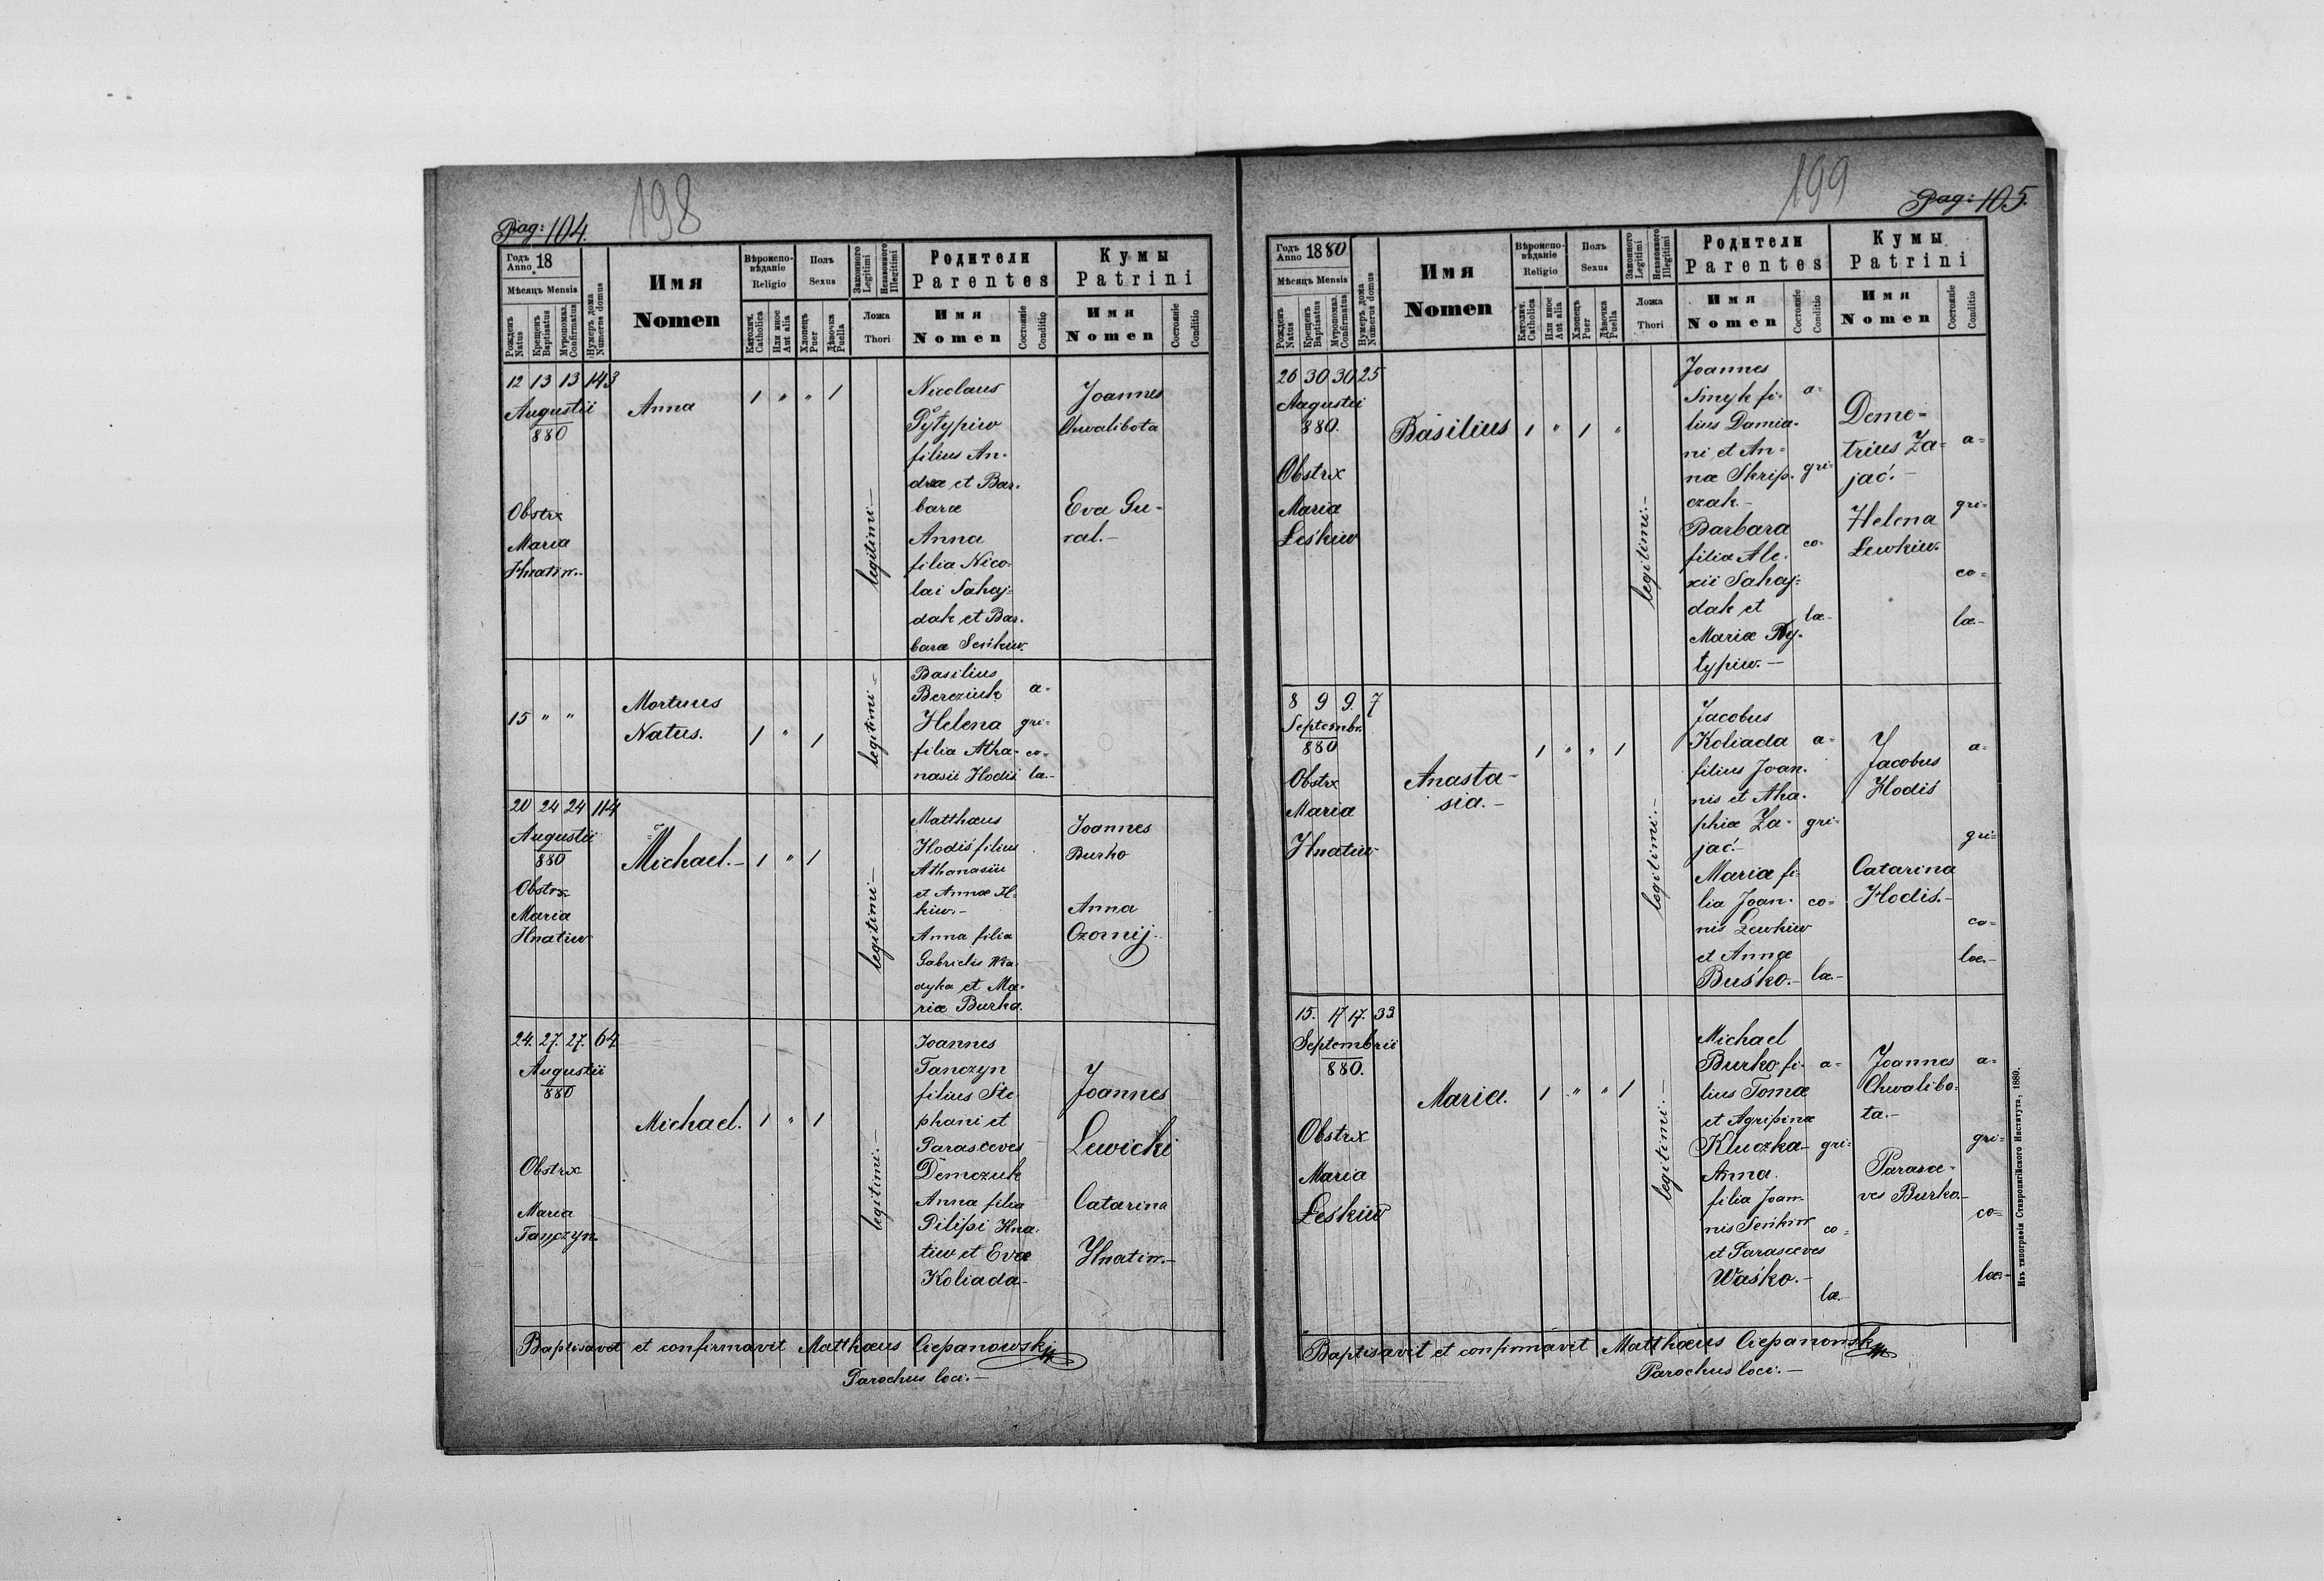 198
Pag: 104.
Годъ Anno 18
Мѣсяцъ Mensis
Рожденъ Natus
Крещенъ Baptisatus
Мѵропомаз. Confirmatus
Нумеръ дома Numerus domus
Имя
Nomen
Вѣроиспо-
вѣданіе
Religio
Католич. Catholica
Или иное Aut alia
Полъ
Sexus
Хлопецъ Puer
Дѣвочка Puella
Законного Legitimi
Незаконного Illegitimi
Ложа
Thori
Родители
Parentes
Имя
Nomen
Состояніе Conditio
Кумы
Patrini
Имя
Nomen
Состояніе Conditio
12 13 13 143
Augustii
880
Obstrx
Maria
Hnatiw.
Anna
1 " " 1
legitimi.-
Nicolaus
Pytypiw
filius An-
dreæ et Bar-
baræ
Anna
filia Nico-
lai Sahaj-
dak et Bar-
baræ Seńkiw.
Joannes
Chwalibota
Eva Gu-
ral.-
15 " "
Mortuus
Natus.
1 " 1
legitimi-
Basilius
Bereziuk
Helena
filia Atha-
nasii Hodiś
a-
gri-
co-
la.-
20 24 24 114
Augustii
880
Obstrx
Maria
Hnatiw
Michael.-
1 " 1
legitimi-
Matthæus
Hodiś filius
Athanasii
et Annæ
kiw.-
Anna filia
Gabrielis
dyka et Ma-
riæ Burka.
Joannes
Burko
Anna
Czornij
24. 27. 27. 64
Augustii
880
Obstrx
Maria
Tanczyn.
Michael.
1 " 1
legitimi.-
Joannes
Tanczyn
filius Ste-
phani et
Parasceves
Demczuk
Anna filia
Pilipi Hna-
tiw et Evæ
Koliada-
Joannes
Lewicki
Catarina
Hnatiw.-
Baptisavit et confirmavit Matthæus Ciepanowskj
Parochus loci.-
199
Pag: 105.
Годъ Anno 1880
Мѣсяцъ Mensis
Рожденъ Natus
Крещенъ Baptisatus
Мѵропомаз. Confirmatus
Нумеръ дома Numerus domus
Имя
Nomen
Вѣроиспо-
вѣданіе
Religio
Католич. Catholica
Или иное Aut alia
Полъ
Sexus
Хлопецъ Puer
Дѣвочка Puella
Законного Legitimi
Незаконного Illegitimi
Ложа
Thori
Родители
Parentes
Имя
Nomen
Состояніе Conditio
Кумы
Patrini
Имя
Nomen
Состояніе Conditio
26 30 30 25
Augustii
880.
Obstrx
Maria
Łeśkiw
Basilius
1 " 1 "
legitimi.-
Joannes
Smyk fi-
lius Damia-
ni et An-
næ Skrip-
czak.-
Barbara
filia Ale-
xii Sahaj-
dak et
Mariæ Py-
typiw.-
a-
gri-
co-
læ-
Deme-
trius Za-
jać.-
Helena
Lewkiw.
a-
gri-
co-
læ-
8 9 9. 7
Septembr.
880
Obstrx
Maria
Hnatiw
Anasta-
sia.-
1 " " 1
legitimi.-
Jacobus
Koliada
filius Joan-
nis et Aha-
phiæ Za-
jać.-
Maria fi-
lia Joan-
nis Lewkiw
et Annæ
Buśko.-
a-
gri-
co-
læ-
Jacobus
Hodiś
Catarina
Hodiś.-
a-
gri-
co-
læ.-
15. 17 17. 33
Septembrii
880.
Obstrx
Maria
Łeśkiw
Maria.
1 " " 1
legitimi.-
Michael
Burko fi-
lius Tomæ
et Agripinæ
Kluczka-
Anna
filia Joan-
nis Seńkiw
et Parasceves
Waśko.-
a-
gri-
co-
læ.-
Joannes
Chwalibo-
ta.-
Parasce-
ves Burko.-
a-
gri-
co-
læ.-
Baptisavit et confirmavit Matthæus Ciepanowskj
Parochus loci.-
Изъ типографіи Ставропигійского Института, 1880.